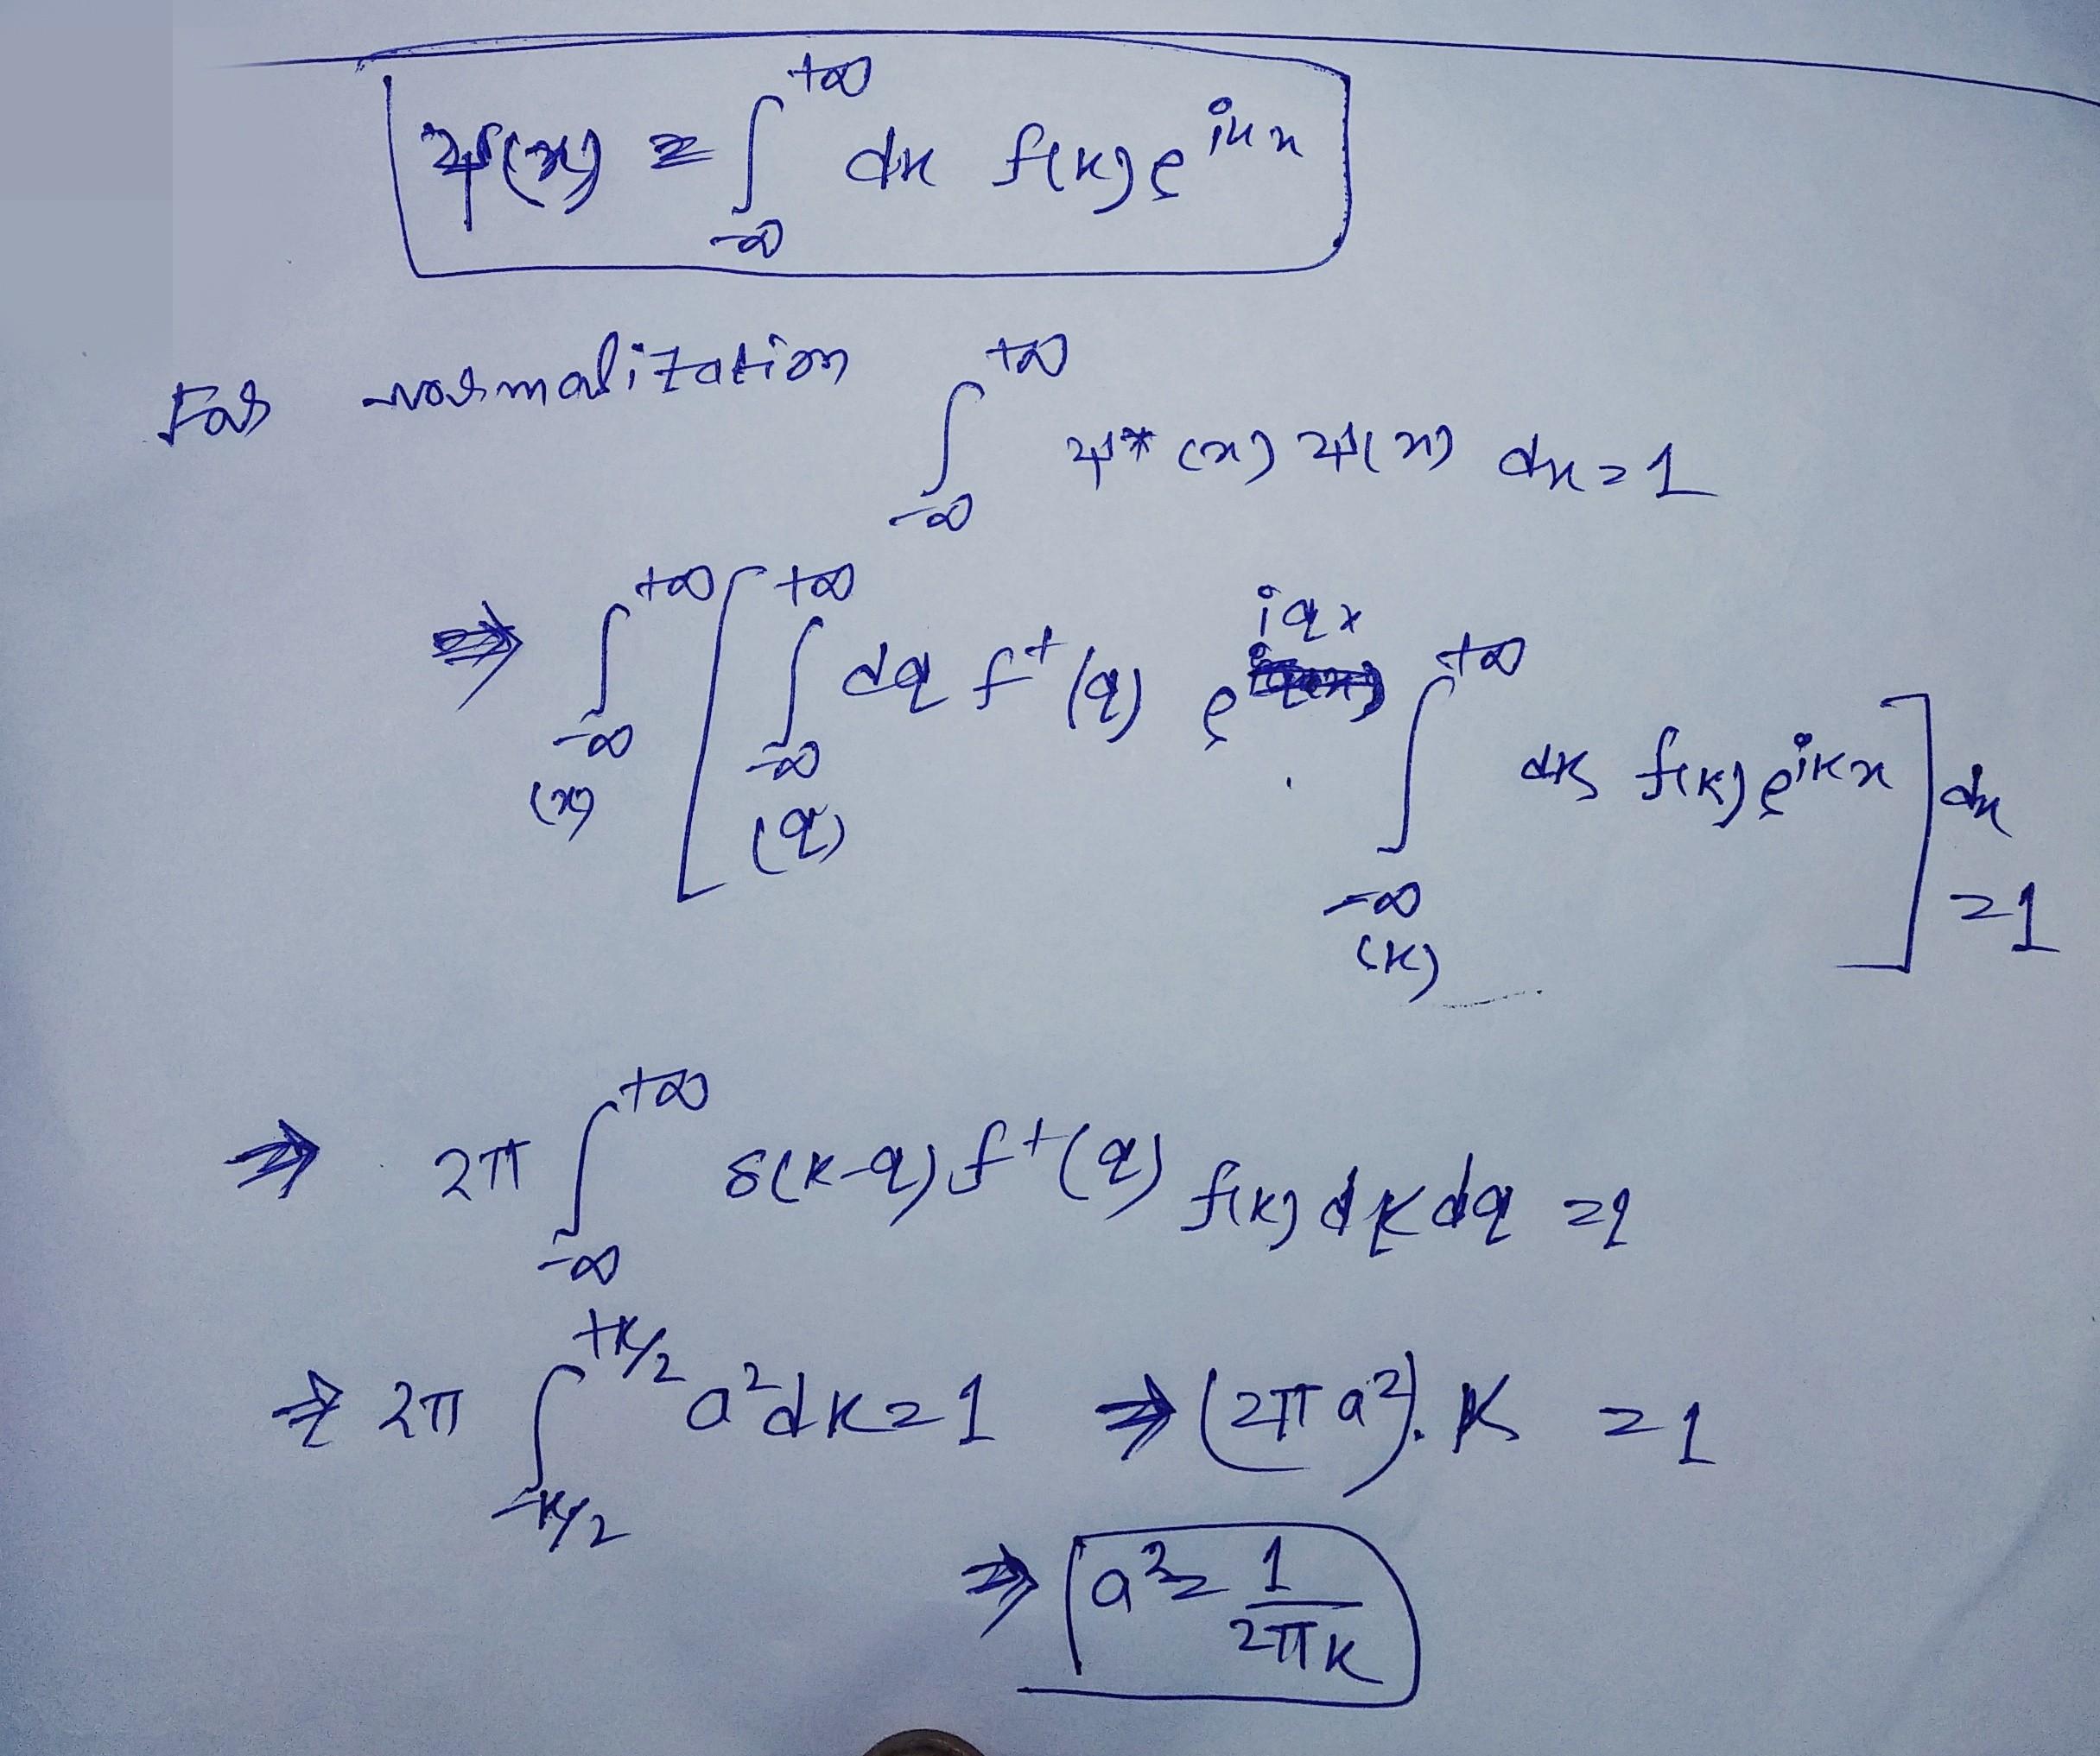 ψ(x) = ∫_{-∞}^{+∞} dk f(k) e^{ikx}
For normalization ∫_{-∞}^{+∞} ψ*(x) ψ(x) dx = 1
⇒ ∫_{-∞ (x)}^{+∞} [ ∫_{-∞ (q)}^{+∞} dq f⁺(q) e^{iqx} . ∫_{-∞ (k)}^{+∞} dk f(k) e^{ikx} ] dx = 1
⇒ 2π ∫_{-∞}^{+∞} δ(k-q) f⁺(q) f(k) dk dq = 1
⇒ 2π ∫_{-k/2}^{+k/2} a² dk = 1 ⇒ (2πa²). K = 1
⇒ a² = 1/2πK